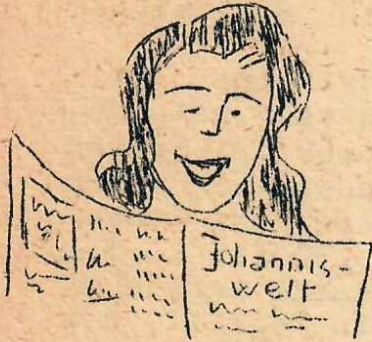 Johannis-
welt